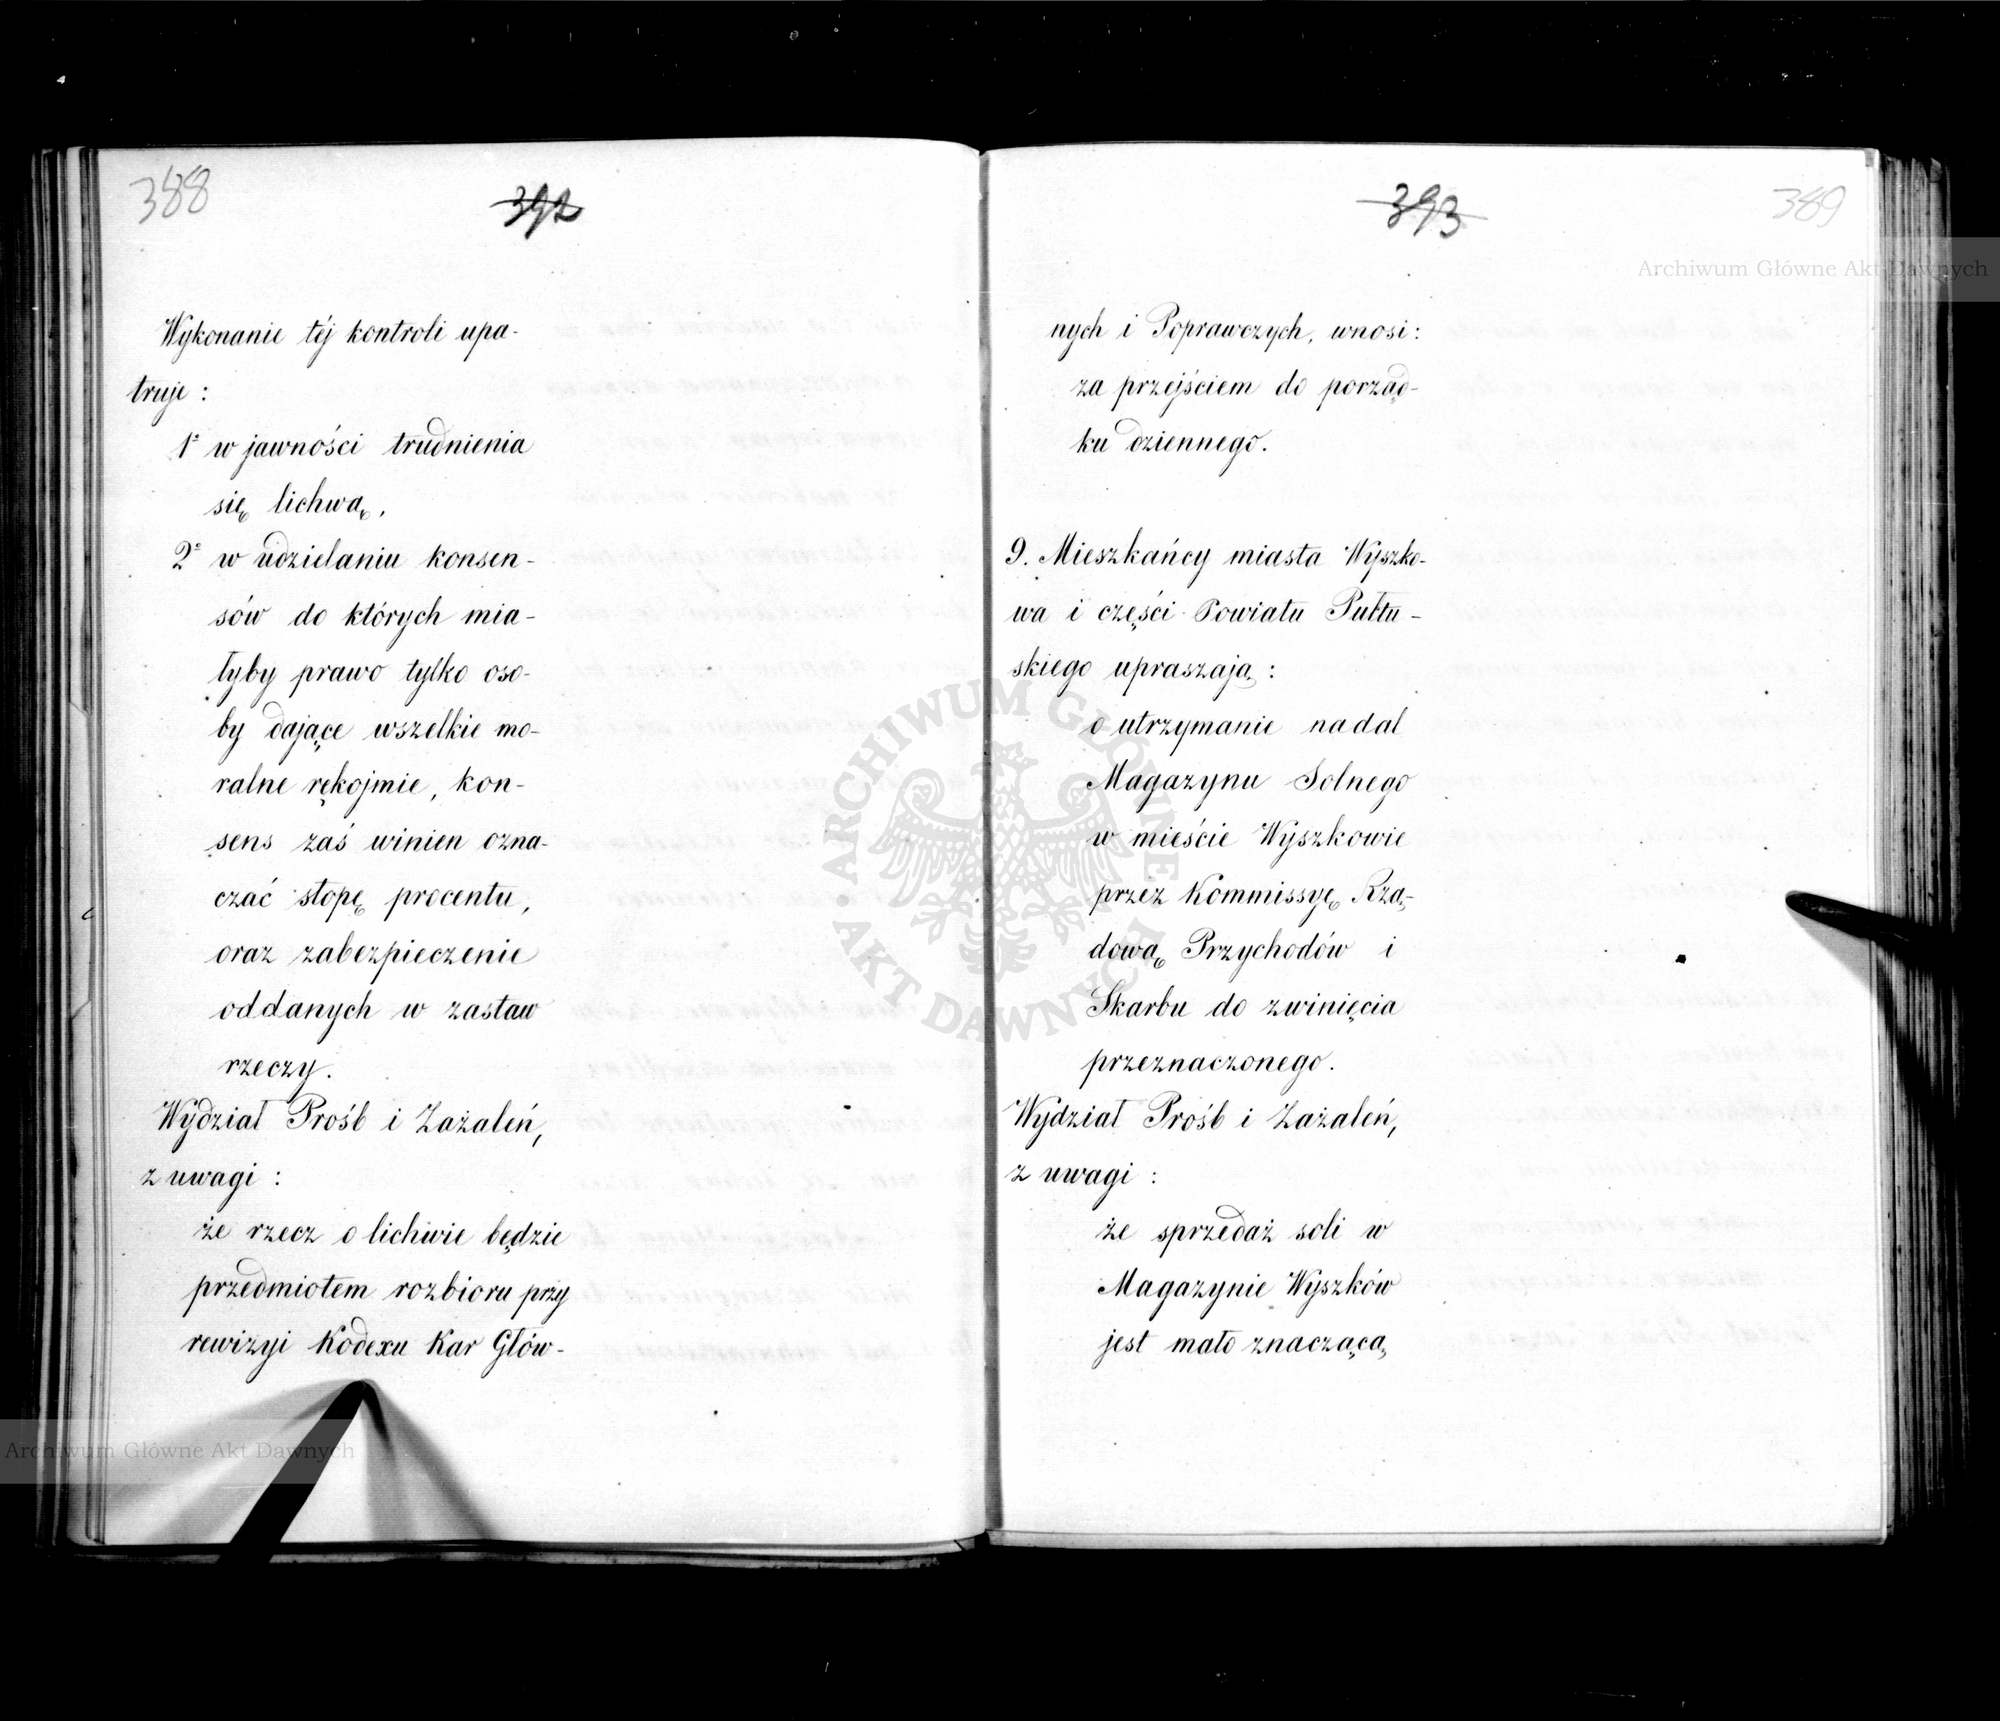 388
392
Wykonanie téj kontroli upa-
truje :
1º w jawności trudnienia
się lichwą,
2º w udzielaniu konsen-
sów do których mia-
łyby prawo tylko oso-
by dające wszelkie mo-
ralne rękojmie, kon-
sens zaś winien ozna-
czać stopę procentu,
oraz zabezpieczenie
oddanych w zastaw
rzeczy.
Wydział Próśb i Zażaleń,
z uwagi :
że rzecz o lichwie będzie
przedmiotem rozbioru przy
rewizyi Kodexu Kar Głów-
393
389
nych i Poprawczych, wnosi :
za przejściem do porząd-
ku dziennego.
9. Mieszkańcy miasta Wyszko-
wa i części Powiatu Pułtu-
skiego upraszają :
o utrzymanie nadal
Magazynu Solnego
w mieście Wyszkowie
przez Kommissyę Rzą-
dową Przychodów i
Skarbu do zwinięcia
przeznaczonego.
Wydział Próśb i Zażaleń,
z uwagi :
że sprzedaż soli w
Magazynie Wyszków
jest mało znaczącą,
Archiwum Główne Akt Dawnych
ARCHIWUM GŁÓWNE AKT DAWNYCH
Archiwum Główne Akt Dawnych